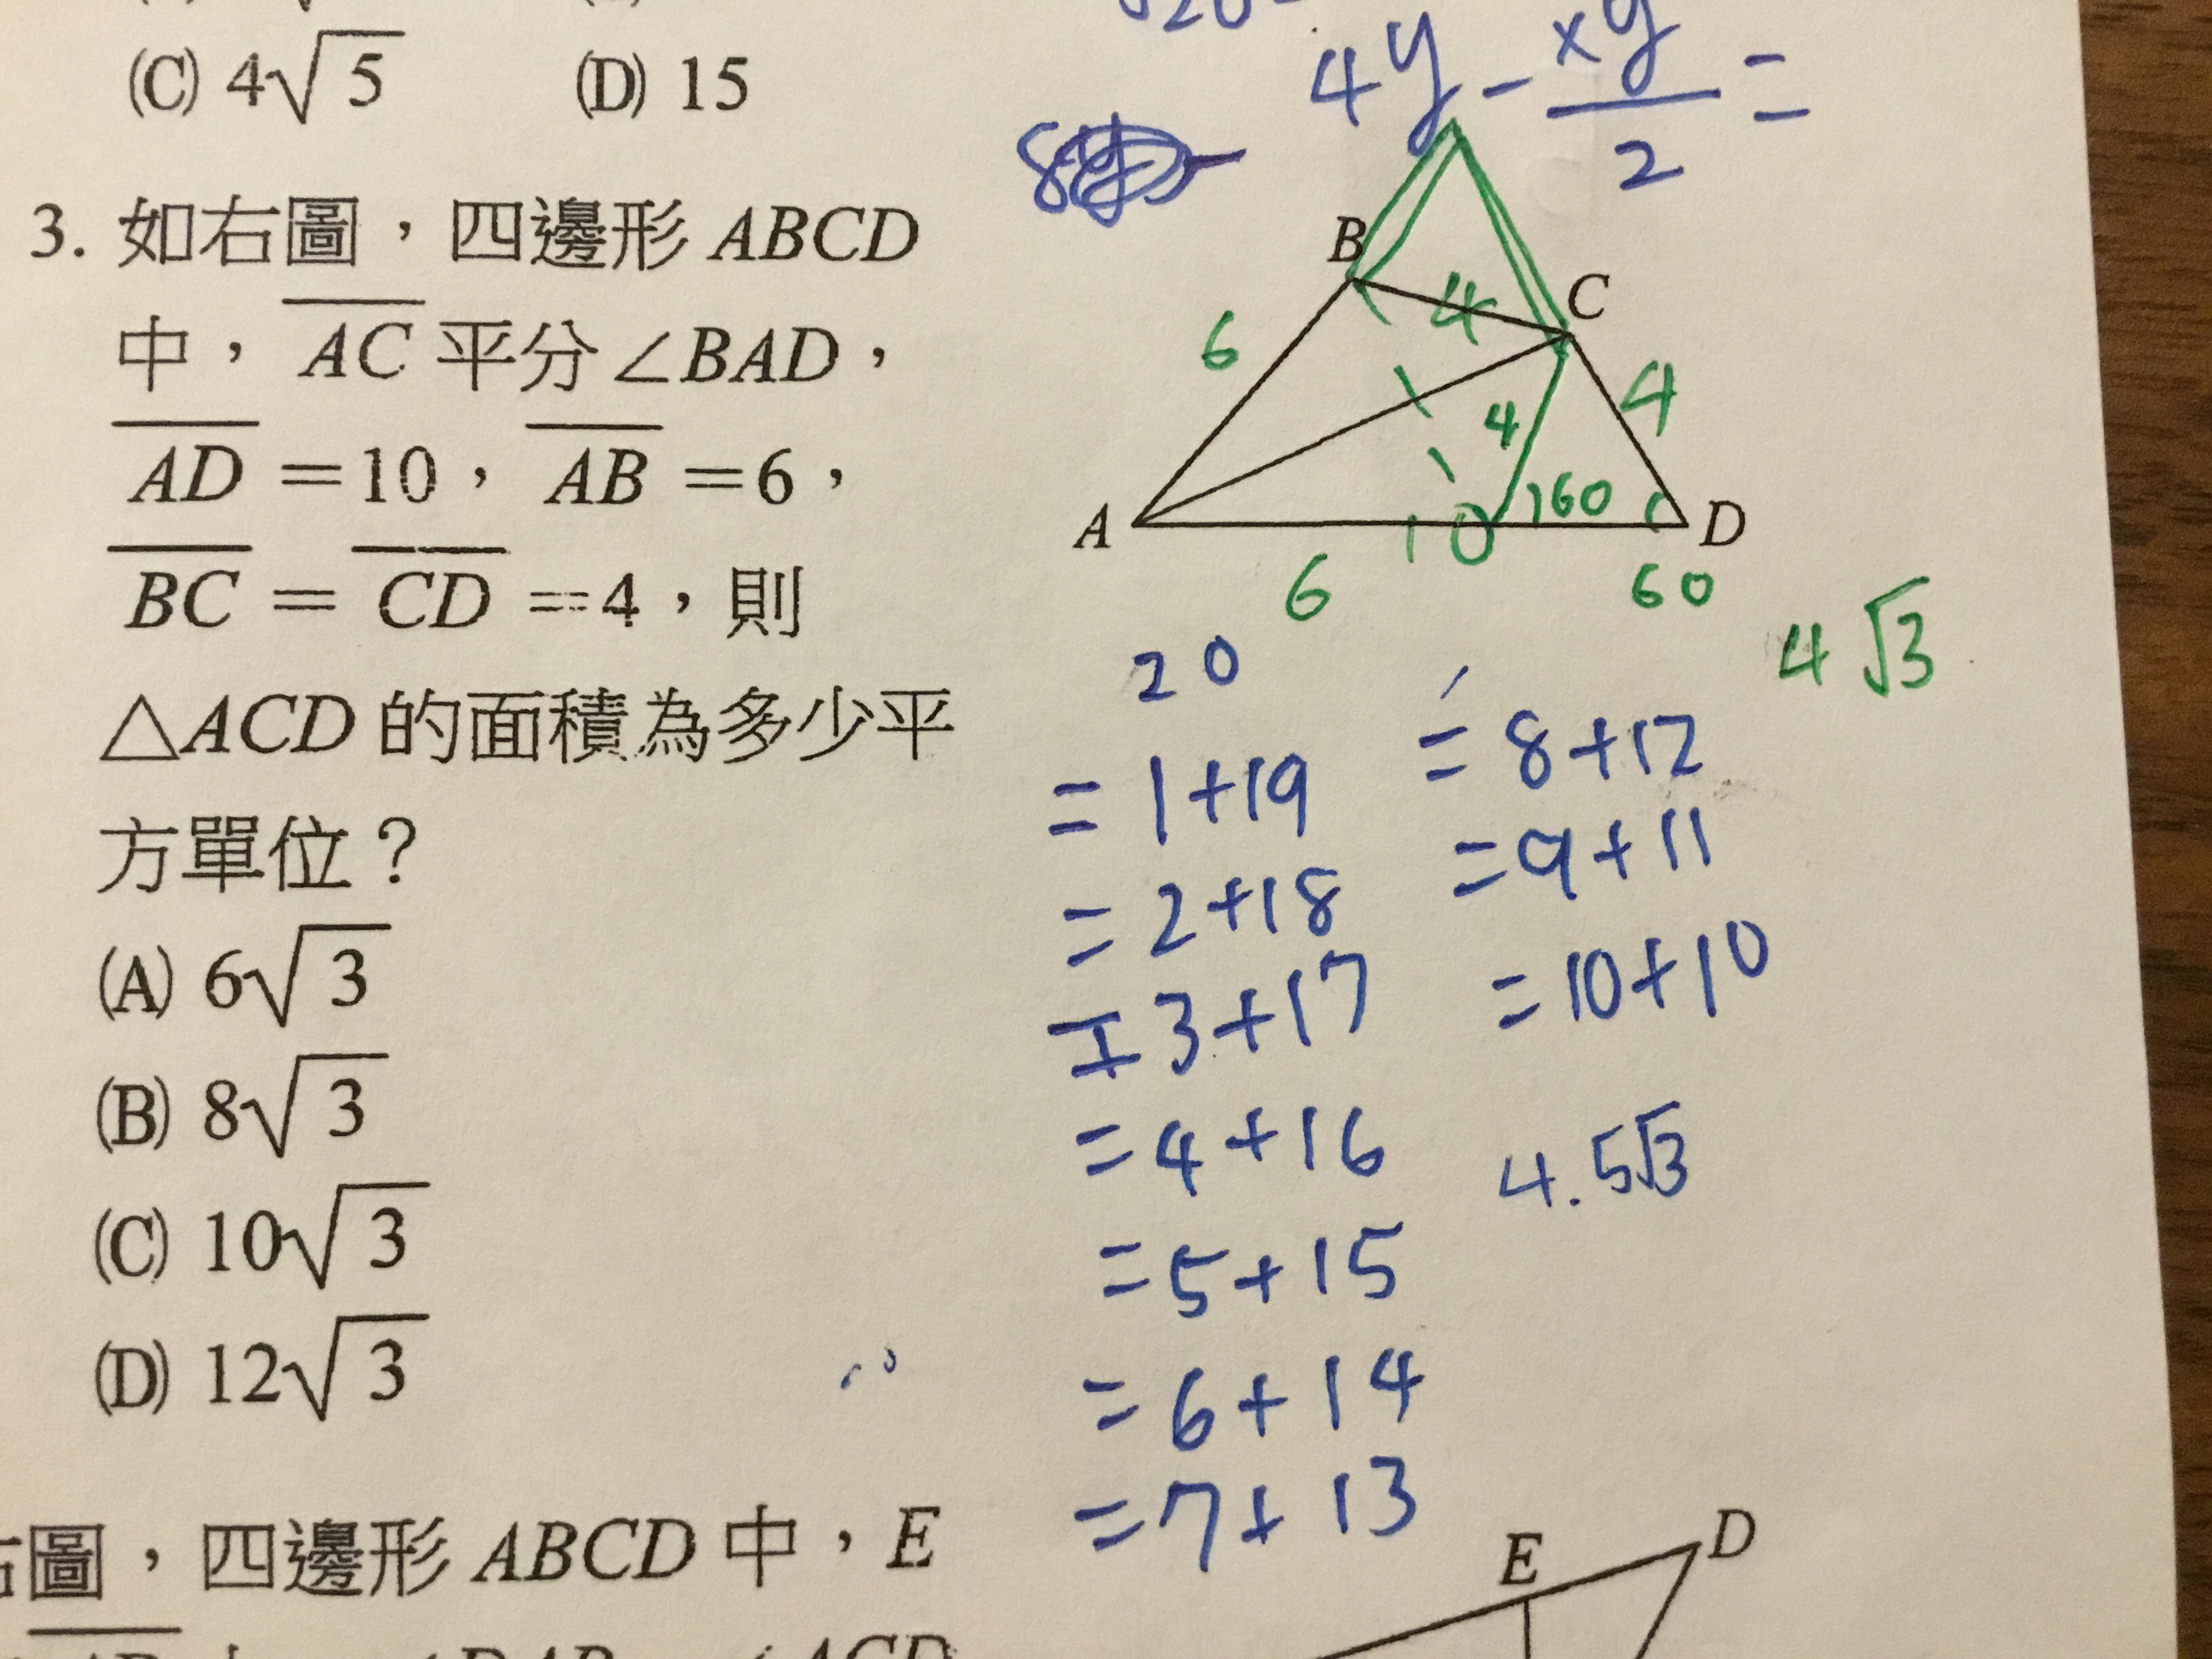 (C) 4√5 (D) 15
√20
4y - xy/2 =
8
3. 如右圖，四邊形 ABCD
中，AC 平分∠BAD，
AD =10，AB =6，
BC = CD =4，則
△ACD 的面積為多少平
方單位？
(A) 6√3
(B) 8√3
(C) 10√3
(D) 12√3
B
C
A
D
6
4
4
4
60
10
6
60
4√3
20
=1+19
=2+18
=3+17
=4+16
=5+15
=6+14
=7+13
=8+12
=9+11
=10+10
4.5√3
右圖，四邊形 ABCD 中，E
E
D